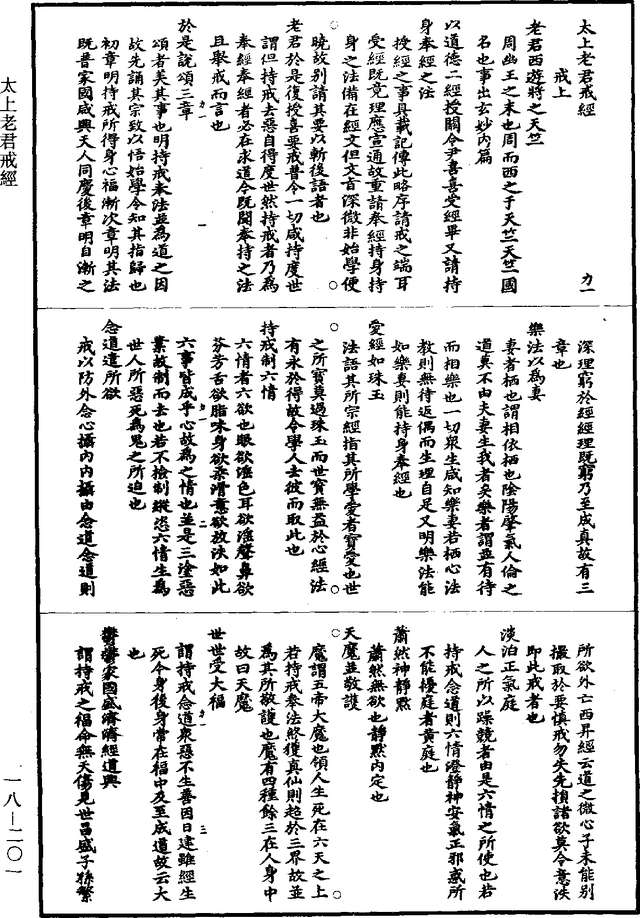 太上老君戒經
力一
戒上
老君西遊將之天竺
周幽王之末也周而西之于天竺天竺國
名也事出玄妙內篇
以道德二經授關令尹喜喜受經畢又請持
身奉經之法
授經之事具載記傳此略序請戒之端耳
受經既竟理應宣通故重請奉經持身持
身之法備在經文但文旨深微非始學便
曉故別請其要以斬後語者也
老君於是復授喜要戒普令一切咸持度世
謂但持戒去惡自得度世然持戒者乃為
奉經奉經者必在求道令既聞奉持之法
且舉戒而言也
於是說頌三章
頌者美其事也明持戒奉法並為道之因
故先誦其宗致以悟始學令知其指歸也
初章明持戒所得身心福漸次章明其法
既普家國咸興天人同慶後章明自漸之
深理窮於經經理既窮乃至成真故有三
章也
樂法以為妻
妻者栖也謂相依栖也陰陽肇氣人倫之
道莫不由夫妻生我者矣樂者謂並有待
而相樂也一切衆生咸知樂妻若栖心法
教則無待返偶而生理自足又明樂法能
如樂妻則能持身奉經也
愛經如珠玉
法語其所宗經指其所學愛者寶愛也世
之所寶莫過珠玉而世寶無益於心經法
有永於得故令學人去彼而取此也
持戒制六情
六情者六欲也眼欲淫色耳欲淫聲鼻欲
芬芳舌欲脂味身欲柔滑意欲放泆如此
六事皆成乎心故為之情也並是三塗惡
業故制而去也若不檢制縱恣六情生為
世人所惡死為鬼之所迫也
念道遣所欲
戒以防外念心攝內內攝由念道念道則
所欲外亡西昇經云道之微心子未能別
撮取於要慎戒勿失先損諸欲莫令意泆
即此戒者也
淡泊正氣庭
人之所以躁競者由是六情之所使也若
持戒念道則六情澄靜神安氣正邪惑所
不能擾庭者黃庭也
蕭然神靜默
蕭然無欲也靜默內定也
天魔並敬護
魔謂五帝大魔也領人生死在六天之上
若持戒奉法終獲真仙則超於三界故並
為其所敬護也魔有四種餘三在人身中
故曰天魔
世世受大福
謂持戒念道衆惡不生善因日建雖經生
死今身後身常在福中及至成道故云大
也
鬱鬱家國盛濟濟經道興
謂持戒之福命無夭傷見世昌盛子孫繁
力一 一
力一 二
力一 三
太上老君戒經
一八—二〇一